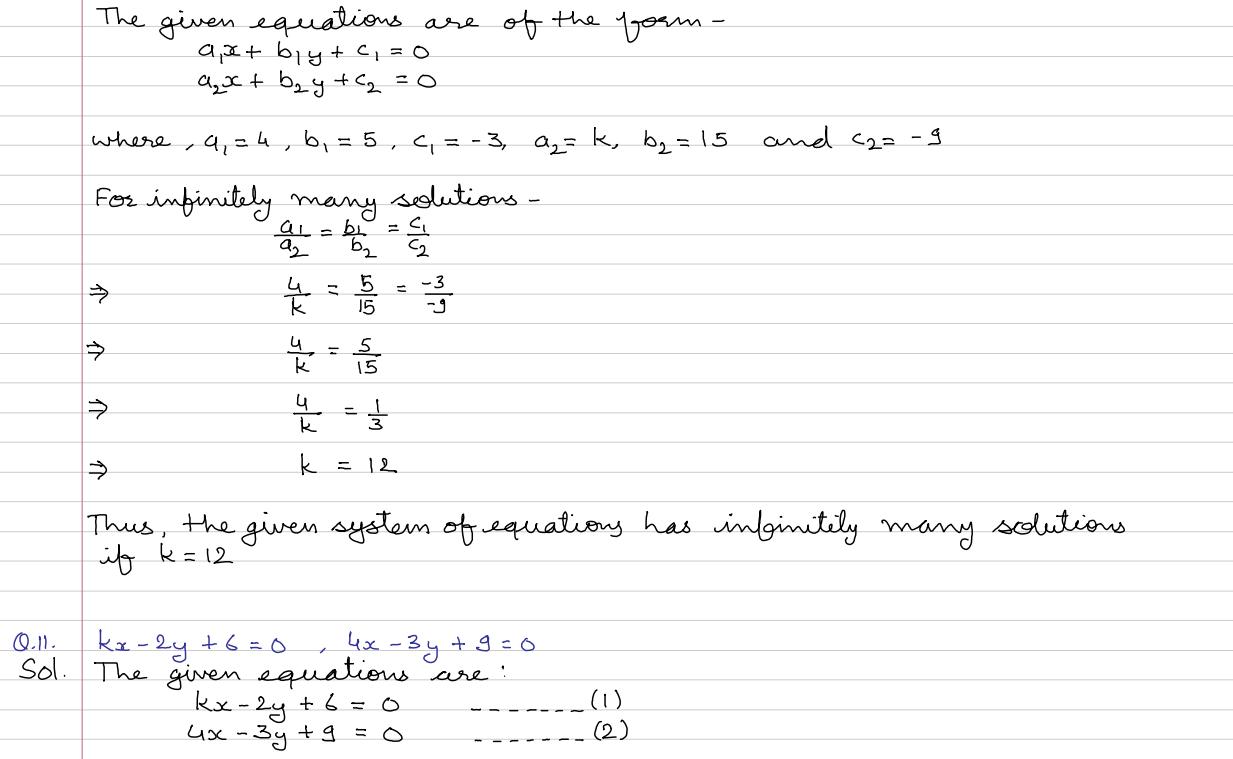 The given equations are of the form -
a₁x + b₁y + c₁ = 0
a₂x + b₂y + c₂ = 0
where, a₁ = 4, b₁ = 5, c₁ = -3, a₂ = k, b₂ = 15 and c₂ = -9
For infinitely many solutions -
a₁/a₂ = b₁/b₂ = c₁/c₂
⇒ 4/k = 5/15 = -3/-9
⇒ 4/k = 5/15
⇒ 4/k = 1/3
⇒ k = 12
Thus, the given system of equations has infinitily many solutions
if k = 12
Q.11. kx - 2y + 6 = 0, 4x - 3y + 9 = 0
Sol. The given equations are:
kx - 2y + 6 = 0 -------(1)
4x - 3y + 9 = 0 -------(2)